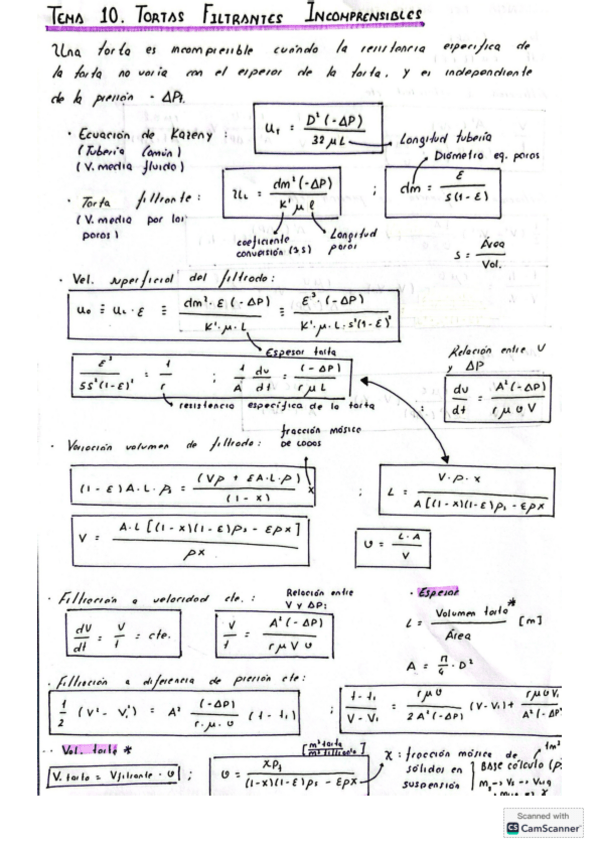 TEMA 10. TORTAS FILTRANTES INCOMPRENSIBLES
Una torta es incompresible cuando la resistencia específica de
la torta no varía con el espesor de la torta, y es independiente
de la presión - ΔP.
· Ecuación de Kozeny :
(Tubería común)
(V. media fluido)
u₁ = D² (-ΔP) / 32 μ L
Longitud tubería
Diámetro eq. poros
· Torta filtrante :
(V. media por los
poros)
u₁ = dm² (-ΔP) / K' μ l ; dm = ε / S(1-ε)
coeficiente
conversión (3,5)
Longitud
poros
S = Área / Vol.
· Vel. superficial del filtrado :
u₀ ≡ u₁ · ε ≡ dm² · ε (-ΔP) / K' · μ · L ≡ ε³ · (-ΔP) / K' · μ · L · S²(1-ε)²
Espesor torta
ε³ / 5S²(1-ε)² = 1 / r ; 1/A dv/dt = (-ΔP) / r μ L
resistencia específica de la torta
Relación entre V
y ΔP
: dv/dt = A² (-ΔP) / r μ υ V
· Variación volumen de filtrado :
fracción másica
de lodos
(1-ε) A · L · ρs = (Vρ + εA·L·ρ) / (1-x) x ; L = V·ρ·x / A[(1-x)(1-ε)ρs - ερx]
V = A·L [(1-x)(1-ε)ρs - ερx] / ρx
υ = L·A / V
· Filtración a velocidad cte. :
Relación entre
V y ΔP:
· Espesor
dV/dt = V/t = cte.
V/t = A² (-ΔP) / r μ V υ
L = Volumen torta* / Área [m]
A = π/4 · D²
· Filtración a diferencia de presión cte :
1/2 (V² - V₁²) = A² (-ΔP) / r · μ · υ (t - t₁) ; t - t₁ / V - V₁ = r μ υ / 2A² (-ΔP) (V - V₁) + r μ υ V₁ / A² (-ΔP
·· Vol. torta *
[m³ torta / m³ filtrado]
V. torta = Vfiltrante · υ ;
υ = xρ₁ / (1-x)(1-ε)ρs - ερx
χ : fracción másica de
sólidos en
suspensión
1m³
BASE CÁLCULO (ρ
Scanned with
CS CamScanner